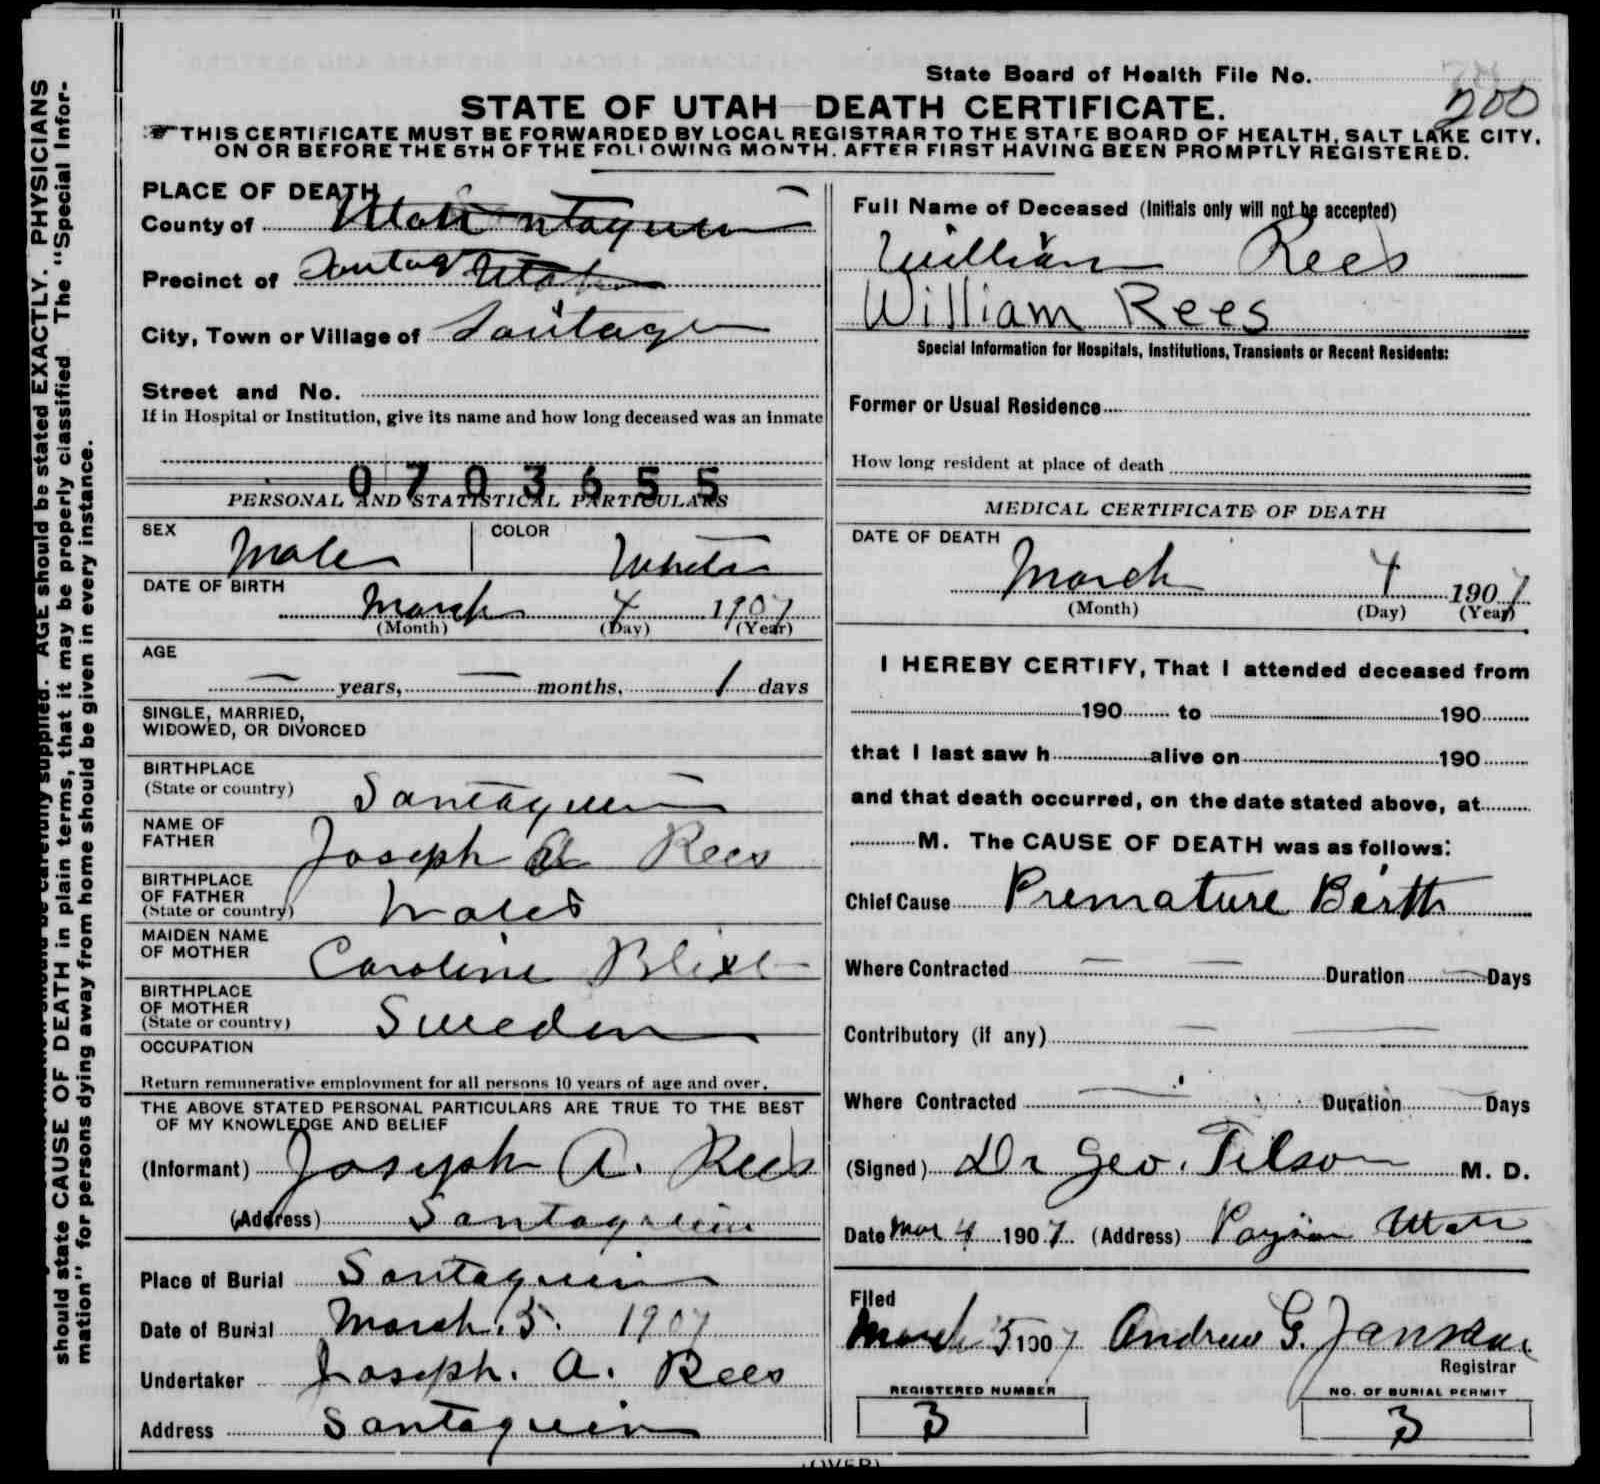 State Board of Health File No.
200
STATE OF UTAH—DEATH CERTIFICATE.
THIS CERTIFICATE MUST BE FORWARDED BY LOCAL REGISTRAR TO THE STATE BOARD OF HEALTH, SALT LAKE CITY,
ON OR BEFORE THE 5TH OF THE FOLLOWING MONTH, AFTER FIRST HAVING BEEN PROMPTLY REGISTERED.
PLACE OF DEATH
County of Utah
Precinct of Utah
City, Town or Village of
Street and No.
If in Hospital or Institution, give its name and how long deceased was an inmate
0703655
PERSONAL AND STATISTICAL PARTICULARS
SEX Male COLOR White
DATE OF BIRTH
March 4 1907
(Month) (Day) (Year)
AGE
— years, — months, 1 days
SINGLE, MARRIED,
WIDOWED, OR DIVORCED
BIRTHPLACE
(State or country) Santaquin
NAME OF
FATHER Joseph A Rees
BIRTHPLACE
OF FATHER
(State or country) Wales
MAIDEN NAME
OF MOTHER Caroline
BIRTHPLACE
OF MOTHER
(State or country) Sweden
OCCUPATION
Return remunerative employment for all persons 10 years of age and over.
THE ABOVE STATED PERSONAL PARTICULARS ARE TRUE TO THE BEST
OF MY KNOWLEDGE AND BELIEF
(Informant) Joseph A. Rees
(Address) Santaquin
Place of Burial Santaquin
Date of Burial March. 5. 1907
Undertaker Joseph. A. Rees
Address Santaquin
Full Name of Deceased (Initials only will not be accepted)
William Rees
William Rees
Special Information for Hospitals, Institutions, Transients or Recent Residents:
Former or Usual Residence
How long resident at place of death
MEDICAL CERTIFICATE OF DEATH
DATE OF DEATH
March 4 1907
(Month) (Day) (Year)
I HEREBY CERTIFY, That I attended deceased from
190 to 190
that I last saw h alive on 190
and that death occurred, on the date stated above, at
M. The CAUSE OF DEATH was as follows:
Chief Cause Premature Birth
Where Contracted — — Duration — Days
Contributory (if any) — —
Where Contracted — Duration Days
(Signed) Dr Geo. Tilson M. D.
Date Mar 4 1907. (Address) Payson Utah
Filed
March 5 1907 Andrew G.
Registrar
REGISTERED NUMBER
3
NO. OF BURIAL PERMIT
3
(OVER)
AGE should be stated EXACTLY. PHYSICIANS
should state CAUSE OF DEATH in plain terms, that it may be properly classified The "Special Infor-
mation" for persons dying away from home should be given in every instance.